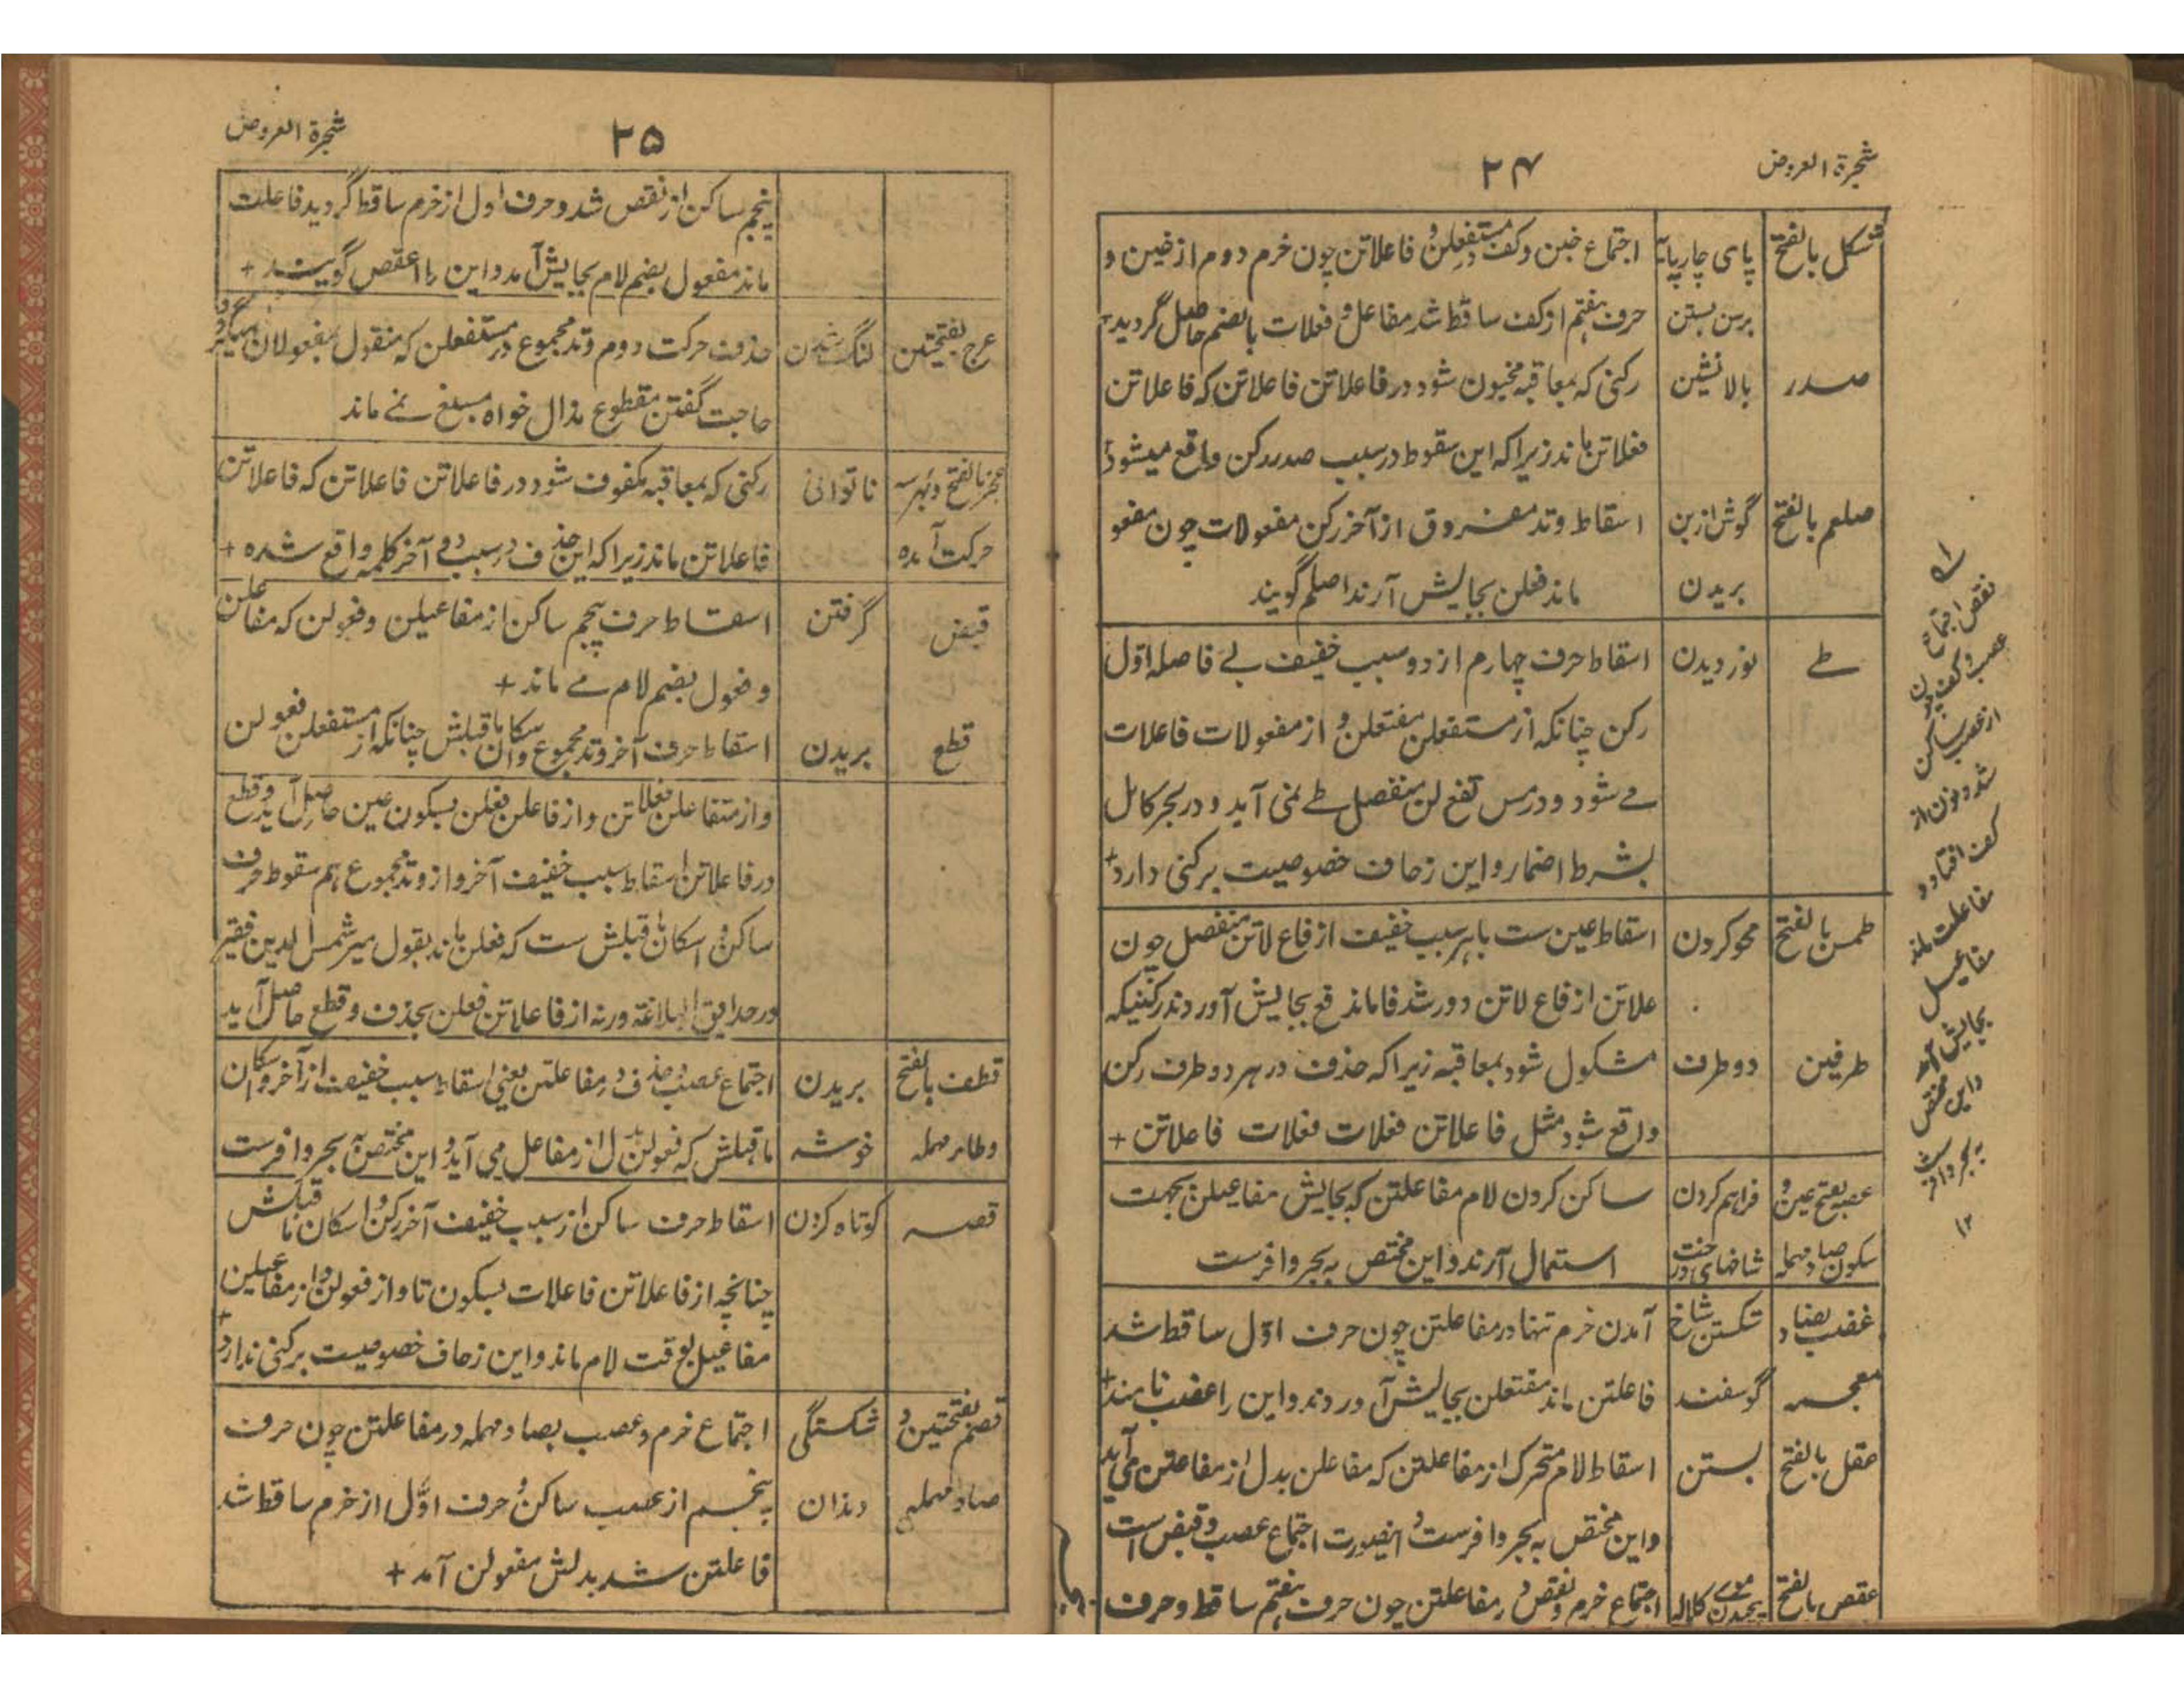 شجرة العروض
۲۴
شکل بالفتح پای چارپایہ اجتماع خبن وکف در مستفعلن و فاعلاتن چون خرم دوم از خبن و
برسن بستن حرف ہفتم از کف ساقط شد مفاعل و فعلات بالضم حاصل گردید+
صدر بالانشین رکنی که بمعاقبه مخبون شود در فاعلاتن فاعلاتن که فاعلاتن
فعلاتن ماند زیرا که این سقوط در سبب صدر رکن واقع میشود
صلم بالفتح گوش از بن اسقاط وتد مفروق از آخر رکن مفعولات چون مفعو
بریدن ماند فعلن بجایش آرند اصلم گویند
طے نوردیدن اسقاط حرف چہارم از دو سبب خفیف بے فاصله اوّل
رکن چنانکہ از مستفعلن مفتعلن و از مفعولات فاعلات
مے شود و در مس تفع لن منفصل طے نمی آید و در بحر کامل
بشرط اضمار و این زحاف خصوصیت برکنی دارد+
طمس بالفتح محو کردن اسقاط عین ست باہر سبب خفیف از فاع لاتن منفصل چون
علاتن از فاع لاتن دور شد فا ماند فع بجایش آوردند رکنیکہ
طرفین دو طرف مشکول شود بمعاقبه زیرا که حذف در ہر دو طرف رکن
واقع شود مثل فاعلاتن فعلات فعلات فاعلاتن +
عصب بفتح عین و فراہم کردن ساکن کردن لام مفاعلتن که بجایش مفاعیلن بجہت
سکون صاد مہملہ شاخہای درخت استعمال آرند و این مختص به بحر وافرست
عضب بضاد شکستن شاخ آمدن خرم تنہا در مفاعلتن چون حرف اوّل ساقط شد
معجمہ گوسفند فاعلتن ماند مفتعلن بجایش آوردند و این را اعضب نامند+
عقل بالفتح بستن اسقاط لام متحرک از مفاعلتن که مفاعلن بدل از مفاعتن می آید
و این مختص به بحر وافرست و اینصورت اجتماع عصب و قبض است
عقص بالفتح پیچیدن موے کلالہ اجتماع خرم و نقص در مفاعلتن چون حرف ہفتم ساقط و حرف
نقص اجتماع
عصب وکف چون
از عصب ساکن
شد و نون از
کف افتاد و
مفاعلت ماند
مفاعیل
بجایش آمد
و این مختص
به بحر وافر ست
۱۲
شجرة العروض
۲۵
پنجم ساکن از نقص شد و حرف اول از خرم ساقط گردید فاعلت
ماند مفعول بضم لام بجایش آمد و این را اعقص گویند +
عرج بفتحتین لنگ شدن حذف حرکت دوم وتد مجموع در مستفعلن که منقول بمفعولان میگردد
حاجت گفتن مقطوع مذال خواه مسبغ نمے ماند
عجز بالفتح و بہر سہ ناتوانی رکنی که بمعاقبه مکفوف شود در فاعلاتن فاعلاتن که فاعلاتن
حرکت آمدہ فاعلاتن ماند زیرا که این حذف در سبب آخر کلمہ واقع شده +
قبض گرفتن اسقاط حرف پنجم ساکن از مفاعیلن و فعولن که مفاعلن
و فعول بضم لام مے ماند +
قطع بریدن اسقاط حرف آخر وتد مجموع و اسکان ماقبلش چنانکہ از مستفعلن مفعولن
و از متفاعلن فعلاتن و از فاعلن فعلن بسکون عین حاصل آید و قطع
در فاعلاتن اسقاط سبب خفیف آخر و از وتد مجموع ہم سقوط حرف
ساکن و اسکان ماقبلش ست که فعلن ماند بقول میر شمس الدین فقیر
در حدایق البلاغة ورنہ از فاعلاتن فعلن بحذف و قطع حاصل آید
قطف بالفتح بریدن اجتماع عصب و حذف در مفاعلتن یعنی اسقاط سبب خفیف از آخر و اسکان
وطاء مہملہ خوشه ماقبلش که فعولن بدل از مفاعل می آید و این مختص به بحر وافرست
قصر کوتاه کردن اسقاط حرف ساکن از سبب خفیف آخر رکن و اسکان ماقبلش
چنانچه از فاعلاتن فاعلات بسکون تا و از فعولن و از مفاعیلن
مفاعیل بوقف لام ماند و این زحاف خصوصیت برکنی ندارد+
قصم بفتحتین و شکستگی اجتماع خرم و عصب بصاد مہملہ در مفاعلتن چون حرف
صاد مہملہ دندان پنجم از عصب ساکن و حرف اوّل از خرم ساقط شد
فاعلتن شد بدلش مفعولن آمد +